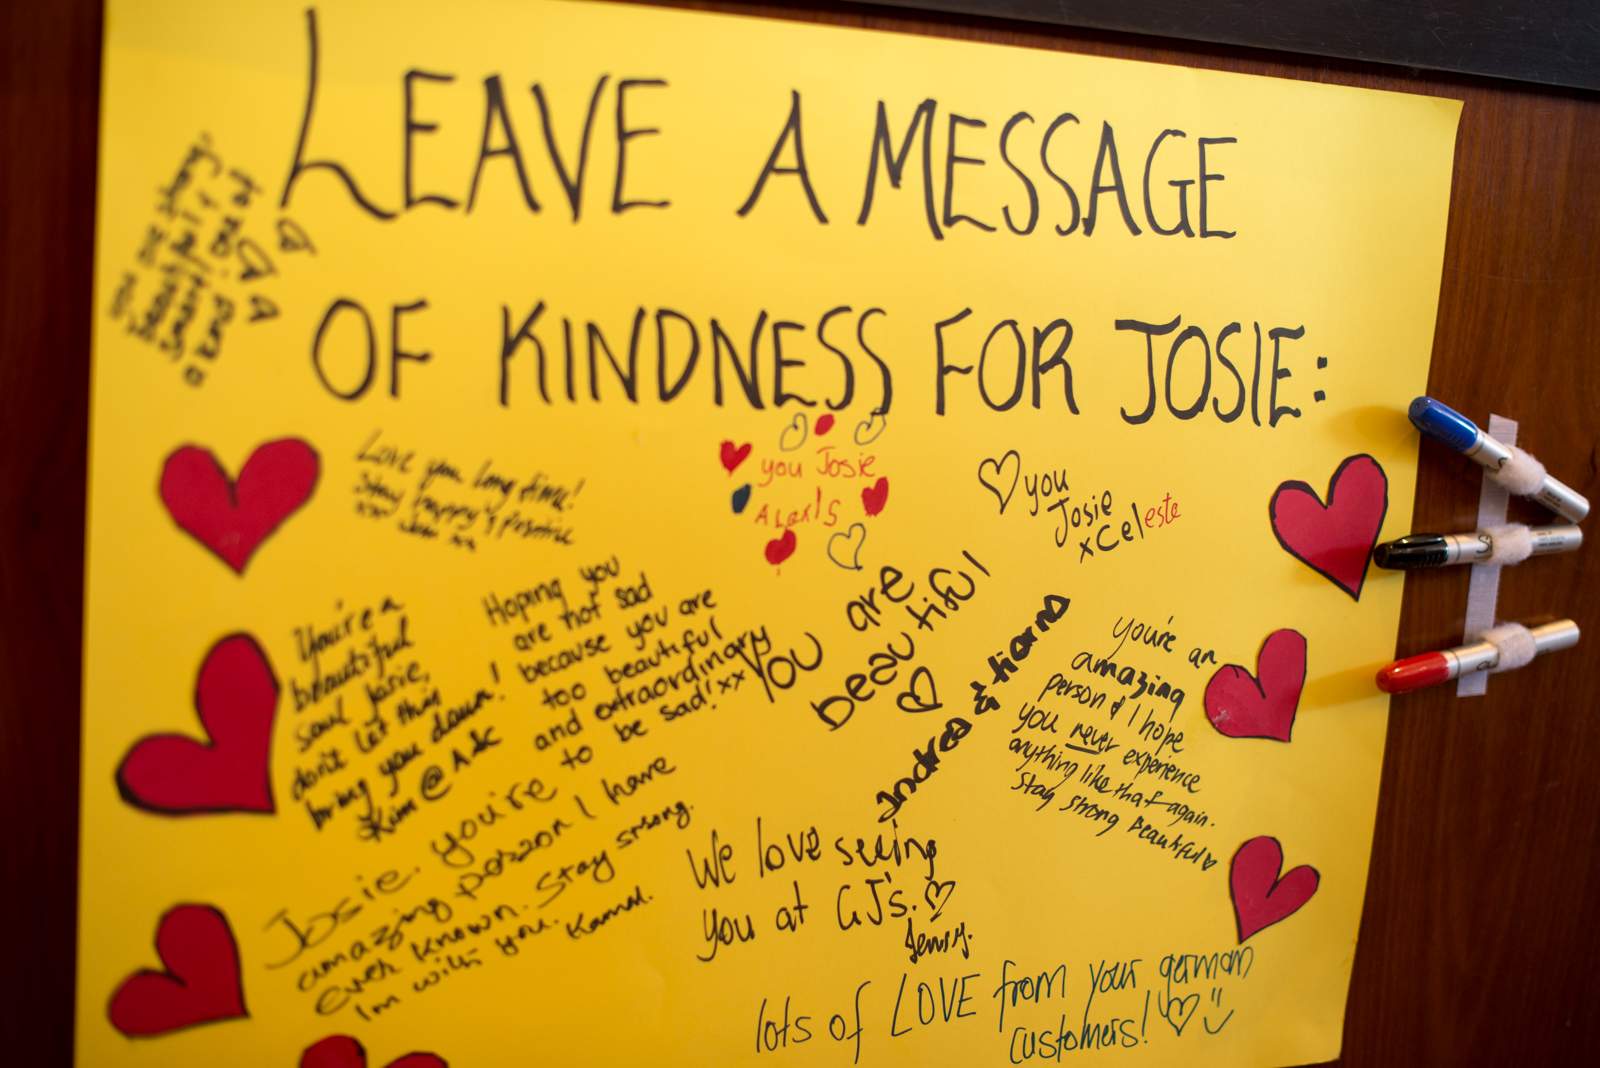 LEAVE A MESSAGE
OF KINDNESS FOR JOSIE:
You are strong,
beautiful &
smart
Love you long time!
Stay happy & positive
you Josie
Alexis
you
Josie
x Celeste
You're a
beautiful
soul Josie,
don't let this
bring you down!
Kim @ A&C
Hoping you
are not sad
because you are
too beautiful
and extraordinary
to be sad! xx
You are
beautiful
Andrea &
You're an
amazing
person & I hope
you never experience
anything like that again.
Stay strong Beautiful
Josie. you're
amazing person I have
ever known. Stay strong.
Im with you. Kamal.
We love seeing
you at GJ's.
Jenny.
lots of LOVE from your german
customers!